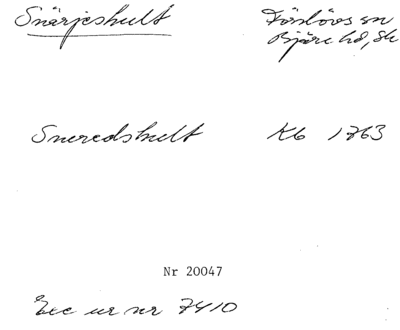 Snärjeshult Förslövs sn
Bjäre hd, Sk
Sneredshult Kb 1763
Nr 20047
Exc ur nr 7410